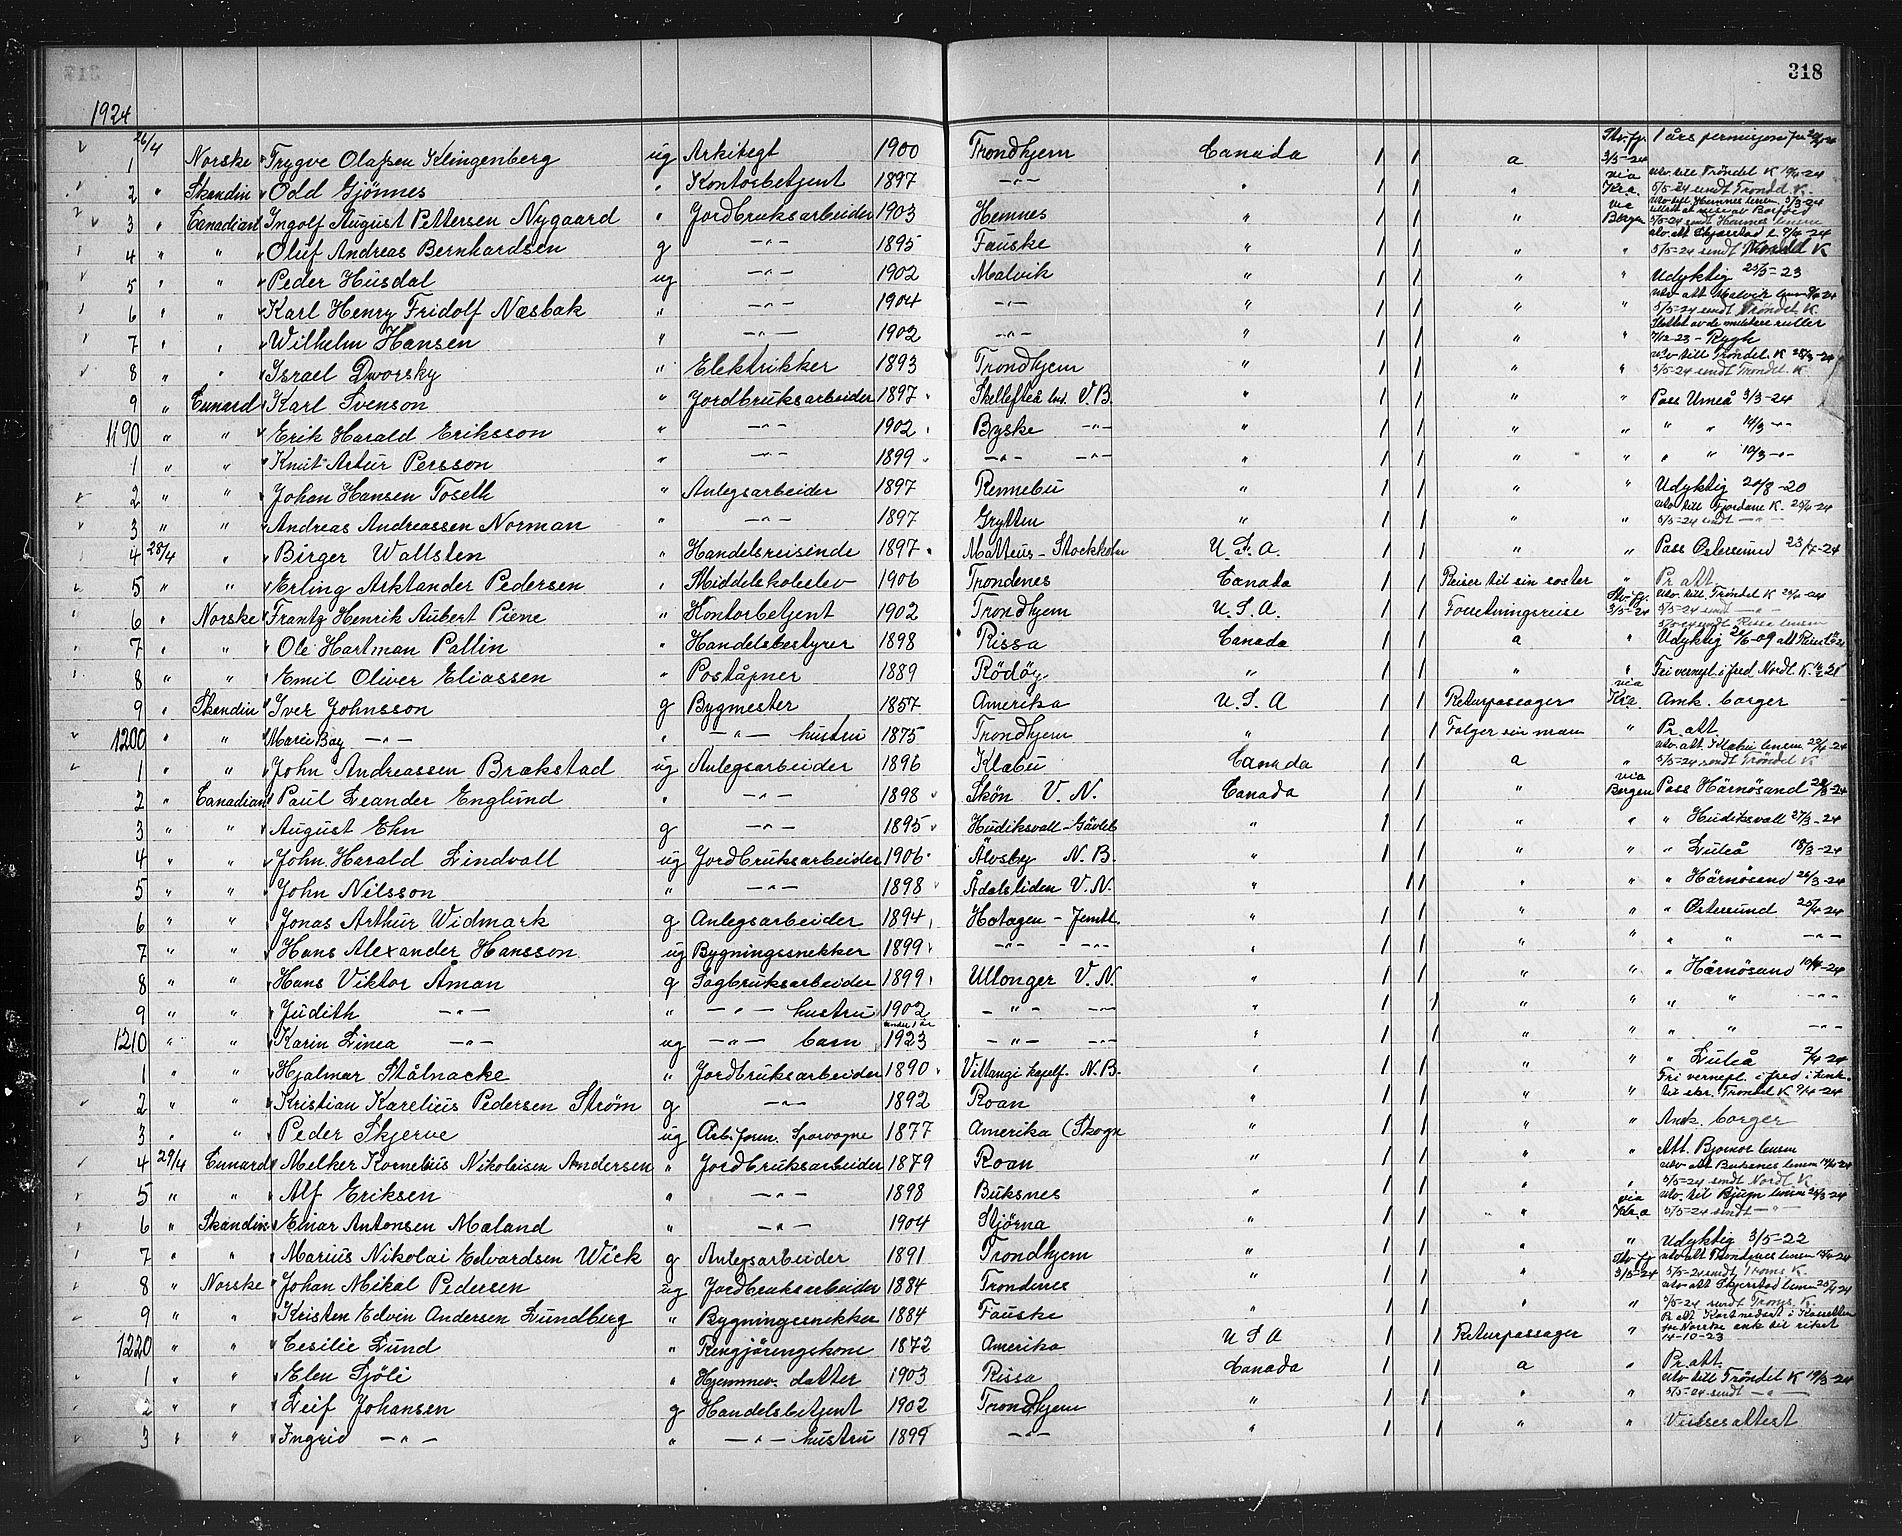 318
1924
1 26/4 Norske Trygve Olafsen Klingenberg ug Arkitegt 1900 Trondhjem Canada 1 1 a 3/5-24 1 års permisjon
2 " Skandin Odd Gjönnes " Kontorbetjent 1897 -"- " 1 1 " via Kra. utv. till Tröndel K 5/5-24 sendt Tröndel K.
3 " Canadian Ingolf August Pettersen Nygaard " Jordbruksarbeider 1903 Hemnes " 1 1 " via Bergen 5/5-24 sendt Hemnes lensm
4 " " Oluf Andreas Bernhardsen g -"- 1895 Fauske " 1 1 " " 5/5-24 sendt Trondel K
5 " " Peder Husdal ug -"- 1902 Malvik " 1 1 " " Udyktig 25/5-23
6 " " Karl Henry Fridolf Næsbak " -"- 1904 -"- " 1 1 " " utv att Malvik lensm 5/5-24 sendt Tröndel K.
7 " " Wilhelm Hansen " -"- 1902 -"- " 1 1 " " Slettet av de militære ruller 7/12-23 - Rygh
8 " " Israel Dworsky " Elektrikker 1893 Trondhjem " 1 1 " " utv till Tröndel. K 5/5-24 sendt Tröndel K.
9 " Cunard Karl Svenson " Jordbruksarbeider 1897 Skellefteå lds. V.B. " 1 1 " " Pass Umeå 3/3-24
1190 " " Erik Harald Eriksson " -"- 1902 Byske -"- " 1 1 " " " " 14/3 -"-
1 " " Knut Artur Persson " -"- 1899 -"- -"- " 1 1 " " " " 10/3 -"-
2 " " Johan Hansen Toseth " Anlegsarbeider 1897 Rennebu " 1 1 " " Udyktig 20/8-20
3 " " Andreas Andreassen Norman " -"- 1897 Grytten " 1 1 " " utv till Fjordane K. 5/5-24 sendt -"-
4 28/4 " Birger Wallsten " Handelsreisende 1897 Matteus - Stockholm U.S.A. 1 1 " " Pass Østersund 23/4-24
5 " " Erling Arktander Pedersen " Middelskoleelev 1906 Trondenes Canada 1 1 Reiser til sin søster " Pr. att.
6 " Norske Frantz Henrik Aubert Piene " Kontorbetjent 1902 Trondhjem U.S.A. 1 1 Forretningsreise 3/5-24 utv. till. Tröndel K 5/5-24 sendt -"-
7 " " Ole Hartman Pallin " Handelsbestyrer 1898 Rissa Canada 1 1 a " Udyktig
8 " " Emil Oliver Eliassen " Poståpner 1889 Rödöy " 1 1 " " Fri vernepl. i fred. Nordl. K.
9 " Skandin Iver Johnsson g Bygmester 1857 Amerika U.S.A 1 1 Returpassager via Kra. Amk. borger
1200 " " Marie Bay -"- " -"- hustru 1875 Trondhjem " 1 1 Følger sin man " Pr. att.
1 " " John Andreassen Brækstad ug Anlegsarbeider 1896 Klæbu Canada 1 1 a " utv. att. Klæbu lensm 5/5-24 sendt Tröndel K
2 " Canadian Paul Leander Englund " -"- 1898 Skön V.N. Canada 1 1 " via Bergen Pass Härnösand 28/3-24
3 " " August Ehn g -"- 1895 Hudiksvall - Gävleb " 1 1 " " " Hudiksvall 27/3-24
4 " " John Harald Lindvall ug Jordbruksarbeider 1906 Älvsby N.B. " 1 1 " " " Luleå 18/3-24
5 " " John Nilsson " -"- 1898 Ådalsliden V.N. " 1 1 " " " Härnösand 26/3-24
6 " " Jonas Arthur Widmark g Anlegsarbeider 1894 Hotagen - Jemtl. " 1 1 " " " Østersund 25/4-24
7 " " Hans Alexander Hansson ug Bygningssnekker 1899 -"- - -"- " 1 1 " " " " -"-
8 " " Hans Viktor Åman g Sagbruksarbeider 1899 Ullånger V.N. " 1 1 " " " Härnösand 10/4-24
9 " " Judith -"- " -"- hustru 1902 -"- -"- " 1 1 " " " " -"-
1210 " " Karin Linea -"- ug -"- barn under 1 år 1923 -"- -"- " 1 1 " " " " -"-
1 " " Hjalmar Stålnacke " Jordbruksarbeider 1890 Vittangi kapelf. N.B. " 1 1 " " " Luleå 2/4-24
2 " " Kristian Karelius Pedersen Strøm g -"- 1892 Roan " 1 1 " " Fri vernepl. i fred Tröndel K 9/4-24
3 " " Peder Skjerve ug Arb. form. Sporvogne 1877 Amerika (Skogn " 1 1 " " Amk. borger
4 29/4 Cunard Melker Kornelius Nikolaisen Andersen " Jordbruksarbeider 1879 Roan " 1 1 " " Att. Bjørnör lensm
5 " " Alf Eriksen " -"- 1898 Buksnes " 1 1 " " utv att Buksnes lensm 5/5-24 sendt Nordl K
6 " Skandin Einar Antonsen Mæland " -"- 1904 Stjörna " 1 1 " via Kra utv. til Bjugn lensm 5/5-24 sendt -"-
7 " " Marius Nikolai Edvardsen Wick g Anlegsarbeider 1891 Trondhjem " 1 1 " " Udyktig 3/5-22
8 " Norske Johan Mikal Pedersen ug Jordbruksarbeider 1884 Trondenes " 1 1 " 3/5-24 utv att Trondenes lensm 5/5-24 sendt Troms K.
9 " " Kristen Edvin Andersen Lundberg " Bygningssnekker 1884 Fauske " 1 1 " " utv att Skjerstad lensm 5/5-24 sendt Troms. K.
1220 " " Cesilie Lund " Rengjöringskone 1872 Amerika U S A 1 1 Returpassager " Norske ank til riket 14-10-23
1 " " Elen Sjöli " Hjemmev. datter 1903 Rissa Canada 1 1 a " Pr. att.
2 " " Leif Johansen g Handelsbetjent 1902 Trondhjem " 1 1 " " utv till Tröndel K 19/3-24 5/5-24 sendt -"-
3 " " Ingrid -"- " -"- hustru 1899 -"- " 1 1 " " Vielsesattest